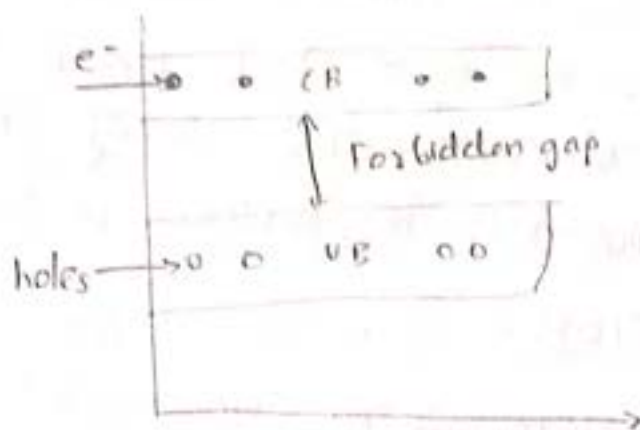 e-
CB
Forbidden gap
holes
VB